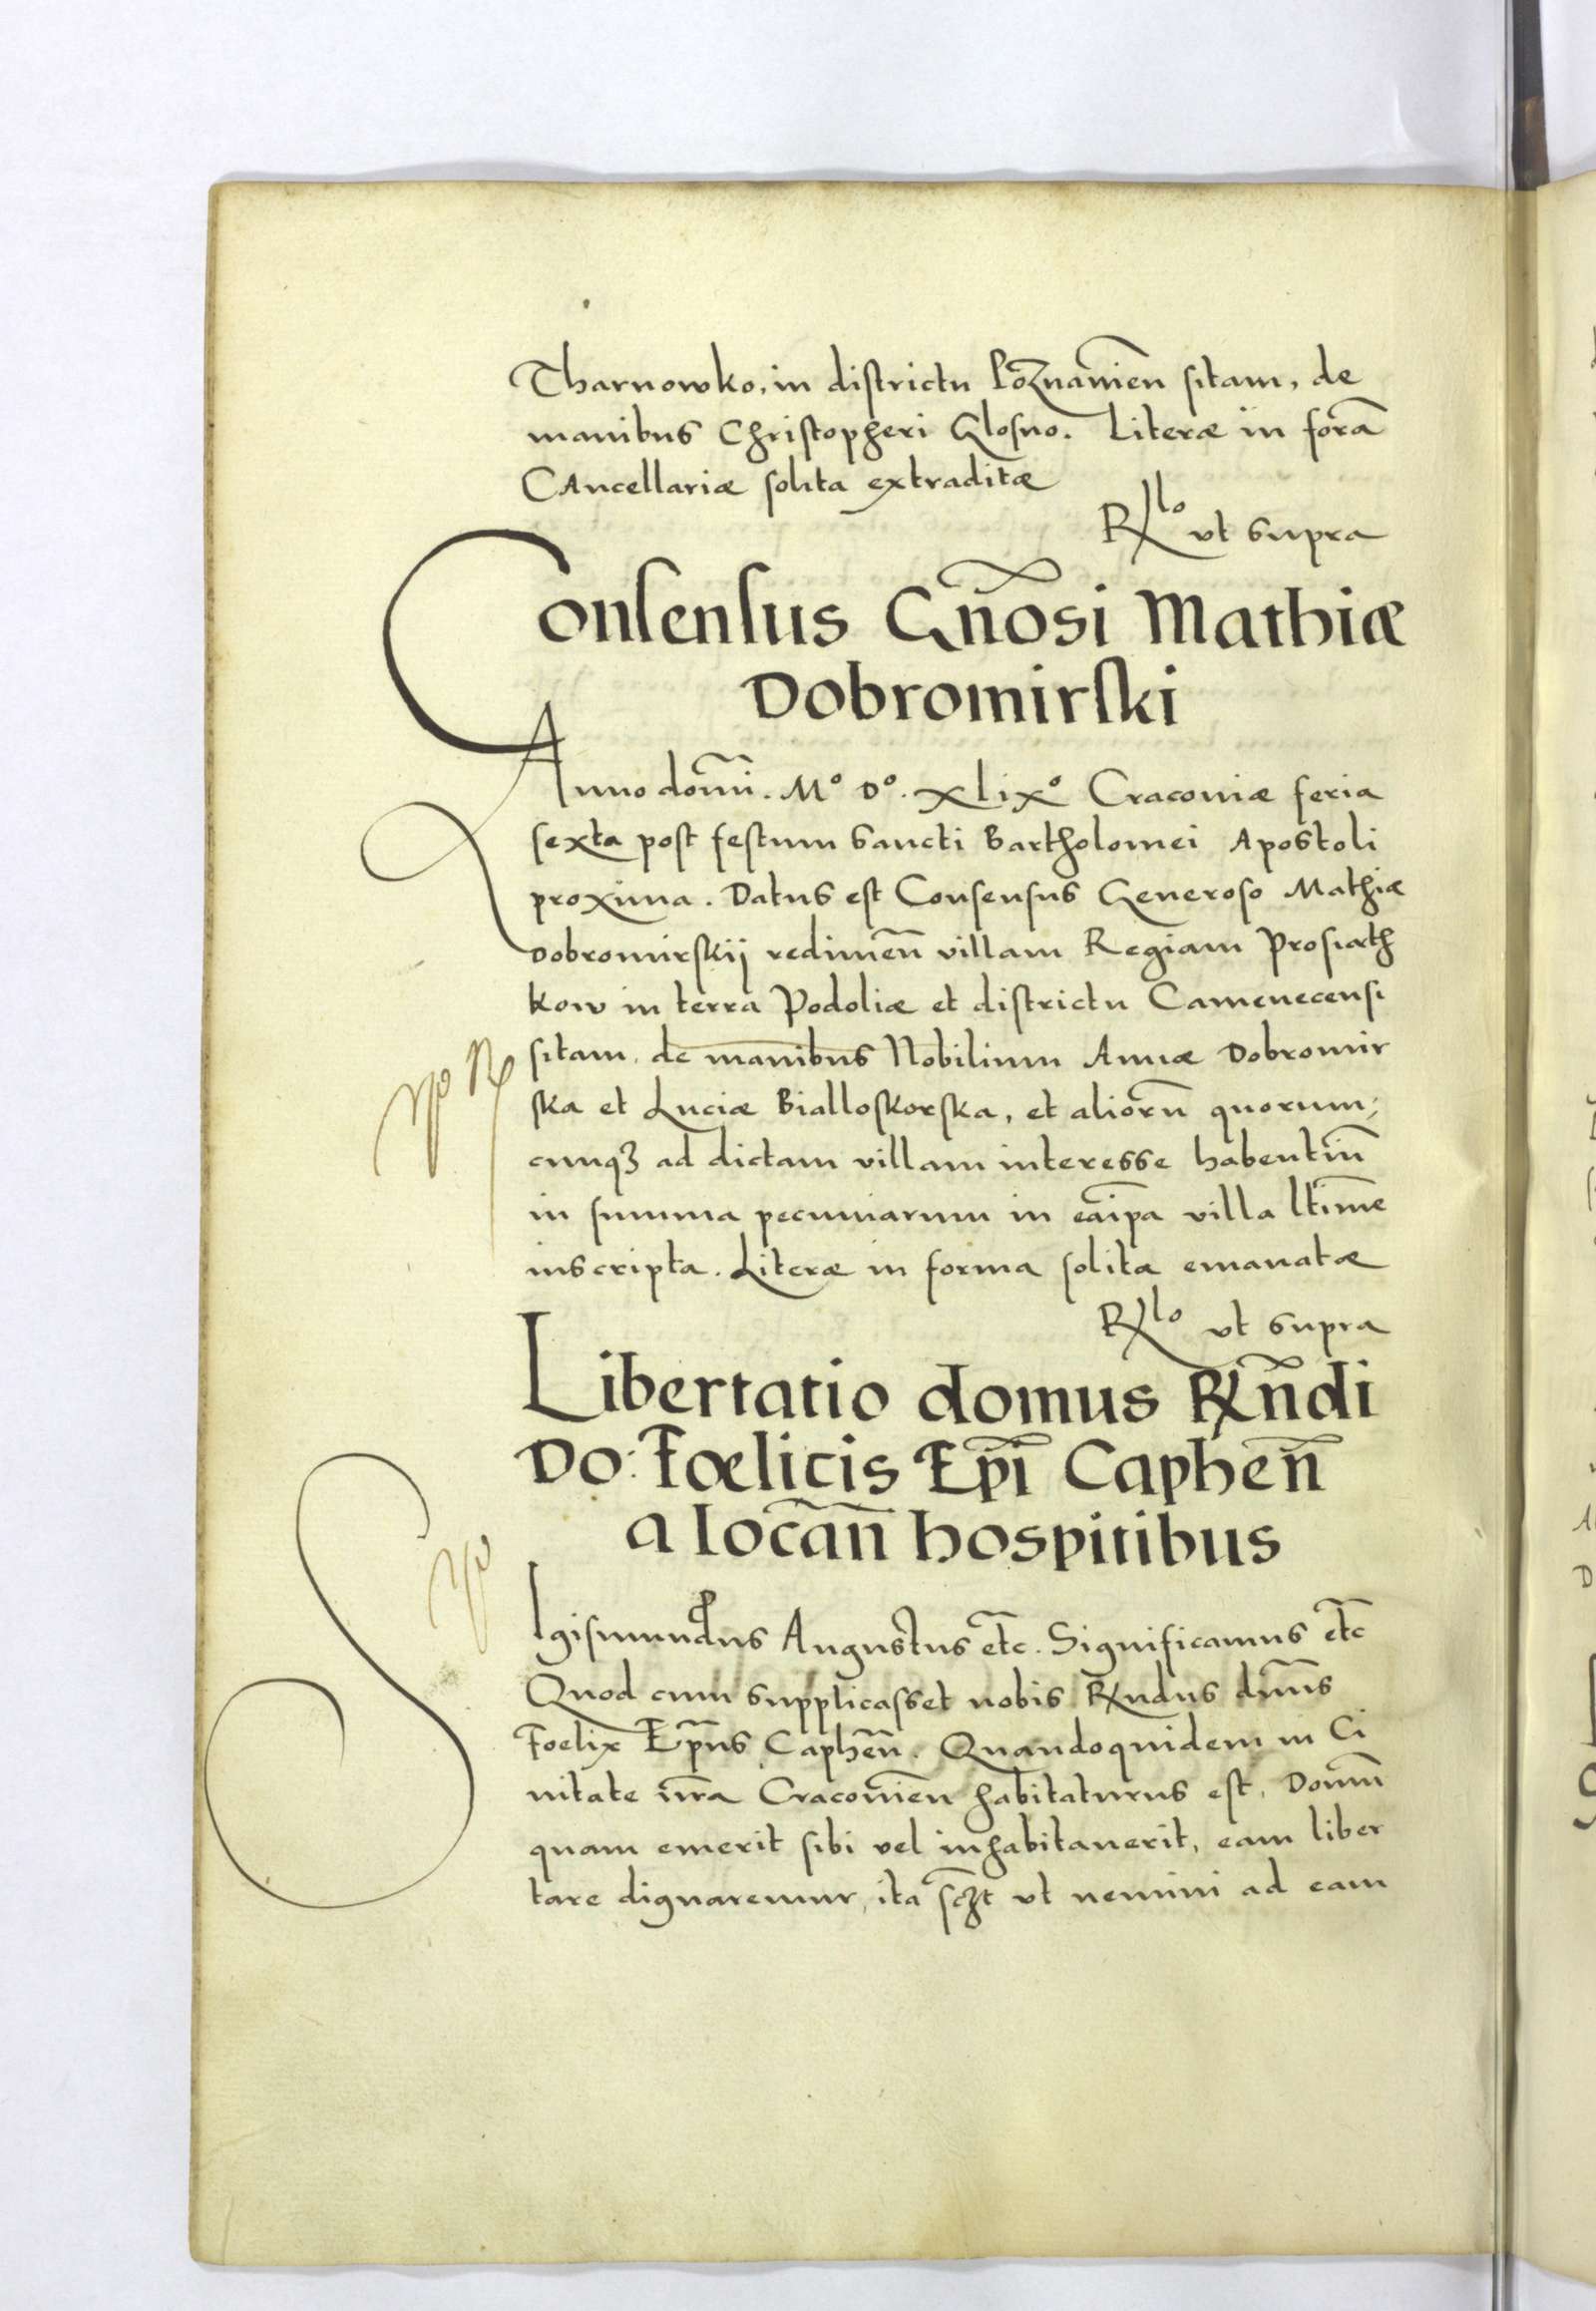 Tharnowko, in districtu Poznanień sitam, de
manibus Christopheri Glosno. Literæ in formā
Cancellariæ solita extraditæ
Rllo vt supra
Consensus Gñosi Mathiæ
Dobromirski
Anno domi͂. Mº Dº. xlixº Cracouiæ feria
sexta post festum Sancti Bartholomei Apostoli
proxima. Datus est Consensus Generoso Mathiæ
Dobromirskij redimeñ villam Regiam Prosiath
kow in terra Podoliæ et districtu Camenecensi
sitam, de manibus Nobilium Annæ Dobromir
ska et Luciæ Bialloskorska, et aliorũ quorum;
cunqꝫ ad dictam villam interesse habentiũ
in summa pecuniarum in eaip̃a villa ltim̃e
inscripta. Literæ in forma solita emanatæ
Rlo vt supra
Libertatio domus Rñdi
Do: Fœlicis Ep̃i Capheñ
a locañ hospitibus
Sigismundus Augustus etc̃. Significamus etc̃
Quod cum supplicasset nobis Rndus dñus
Foelix Ep̃us Capheñ. Quandoquidem in Ci
uitate ñra Cracouień habitaturus est, Domũ
quam emerit sibi vel inhabitauerit, eam liber
tare dignaremur, ita scꝫt vt nemini ad eam